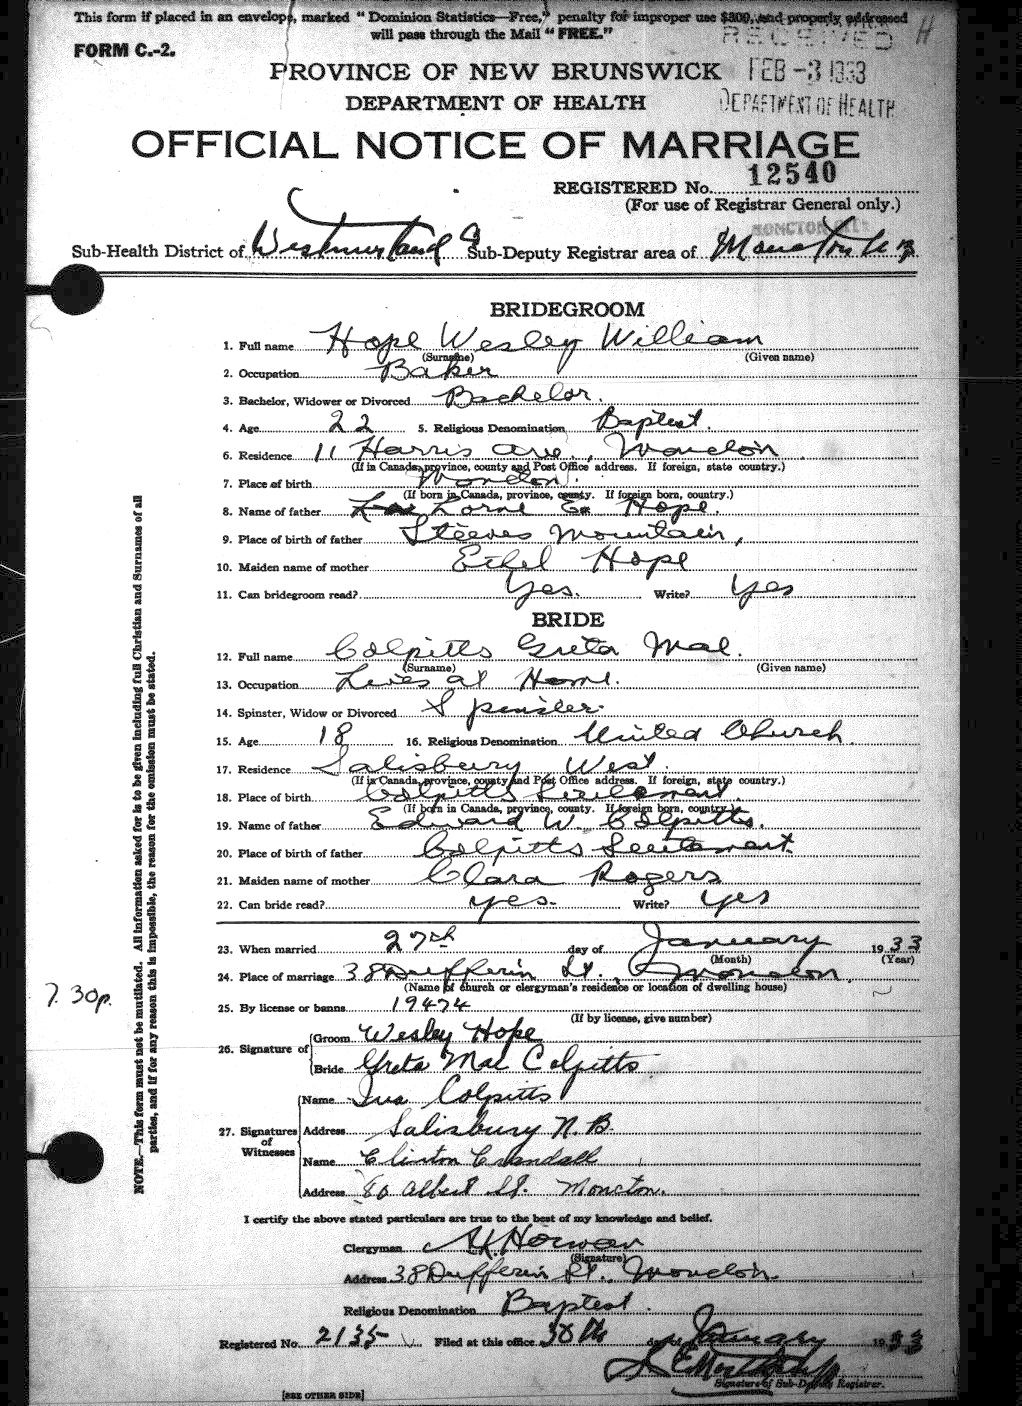 This form if placed in an envelope, marked "Dominion Statistics—Free," penalty for improper use $300, and properly addressed
will pass through the Mail "FREE."
H
FORM C.-2.
RECEIVED
FEB -3 1933
DEPARTMENT OF HEALTH
PROVINCE OF NEW BRUNSWICK
DEPARTMENT OF HEALTH
OFFICIAL NOTICE OF MARRIAGE
REGISTERED No. 12540
(For use of Registrar General only.)
MONCTON
Sub-Health District of Westmorland Sub-Deputy Registrar area of Moncton N B
BRIDEGROOM
1. Full name Hope Wesley William
(Surname) (Given name)
2. Occupation Baker
3. Bachelor, Widower or Divorced Bachelor.
4. Age 22 5. Religious Denomination Baptist.
6. Residence 11 Harris Ave., Moncton
(If in Canada, province, county and Post Office address. If foreign, state country.)
7. Place of birth Moncton.
(If born in Canada, province, county. If foreign born, country.)
8. Name of father Lorne E. Hope.
9. Place of birth of father Steeves Mountain,
10. Maiden name of mother Ethel Hope
11. Can bridegroom read? Yes. Write? Yes
BRIDE
12. Full name Colpitts Greta Mae.
(Surname) (Given name)
13. Occupation Lives at Home.
14. Spinster, Widow or Divorced Spinster.
15. Age 18 16. Religious Denomination United Church.
17. Residence Salisbury West.
(If in Canada, province, county and Post Office address. If foreign, state country.)
18. Place of birth Colpitts Settlement.
(If born in Canada, province, county. If foreign born, country.)
19. Name of father Edward W. Colpitts.
20. Place of birth of father Colpitts Settlement.
21. Maiden name of mother Clara Rogers
22. Can bride read? yes. Write? yes
23. When married 27th day of January 1933
(Month) (Year)
24. Place of marriage 38 Dufferin St., Moncton.
(Name of church or clergyman's residence or location of dwelling house)
7.30p.
25. By license or banns 19474
(If by license, give number)
26. Signature of Groom Wesley Hope
Bride Greta Mae Colpitts
27. Signatures of Witnesses
Name Iva Colpitts
Address Salisbury N.B.
Name Clinton Crandall
Address 80 Albert St. Moncton.
I certify the above stated particulars are true to the best of my knowledge and belief.
Clergyman
(Signature)
Address 38 Dufferin St., Moncton.
Religious Denomination Baptist.
Registered No. 2135 Filed at this office 30th day of January 1933
Signature of Sub-Deputy Registrar.
[SEE OTHER SIDE]
NOTE.—This form must not be mutilated. All information asked for is to be given including full Christian and Surnames of all
parties, and if for any reason this is impossible, the reason for the omission must be stated.